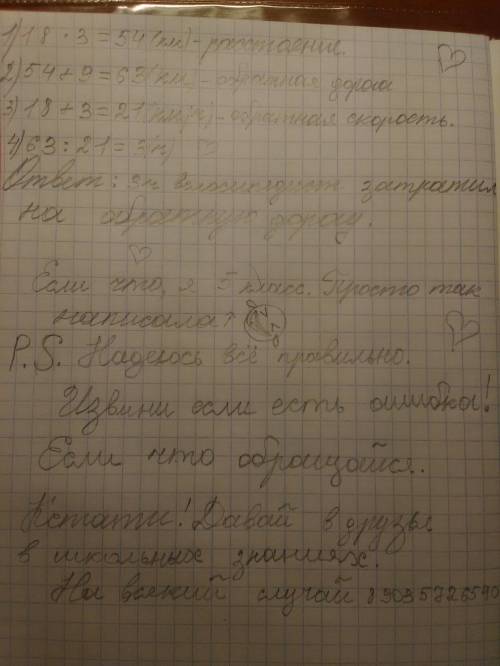 1) 18 · 3 = 54 (км) - расстояние.
2) 54 + 9 = 63 (км) - обратная дорога
3) 18 + 3 = 21 (км/ч) - обратная скорость.
4) 63 : 21 = 3 (ч)
Ответ: 3ч велосипедист затратил
на обратную дорогу.
Если что, я 5 класс. Просто так
написала ↑
P.S. Надеюсь всё правильно.
Извини если есть ошибки!
Если что обращайся.
Кстати! Давай в друзья
в школьных знаниях.
На всякий случай 89035726590